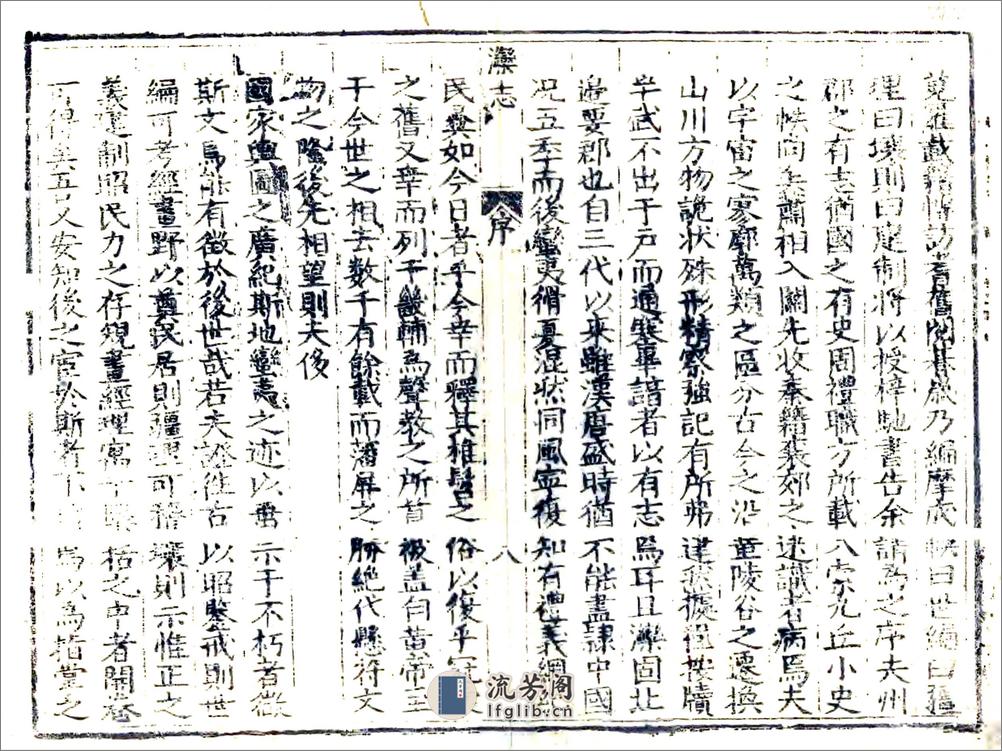 蒐羅載籍博訪耆舊閱朞歲乃編摩成帙曰世編曰疆
理曰壤則曰建制將以授梓馳書告余請為之序夫州
郡之有志猶國之有史周禮職方所載八索九丘小史
之帙尚矣蕭相入關先收秦籍裴郊之逑識者病焉夫
以宇宙之寥廓萬類之區分古今之沿革陵谷之遷換
山川方物詭状殊形精察強記有所弗逮茲援毡按牘
年武不出于户而通寒畢諳者以有志焉耳且灤圖北
邊要郡也自三代以來雖漢唐盛時猶不能盡隷中國
况五季而後蠻夷猾夏混状同風寧復知有禮義綱
民彞如今日者乎今幸而釋其椎髻之俗以復乎冠
之舊又幸而列于畿輔為聲教之所首被盖自黄帝至
于今世之相去数千有餘載而藩屏之勝絶代懸符文
物之隆後先相望則夫侈
國家輿圖之廣紀斯地蠻夷之迹以垂示于不朽者微
斯文焉能有徵於後世哉若夫證往古以昭鑒戒則世
編可考經畫野以奠民居則疆理可稽壤則示惟正之
義建制昭民力之存規畫經理寓于檃括之中者開卷
可得矣吾又安知後之宦於斯者不為以為指掌之
灤志
序
八
流芳阁
lfglib.cn